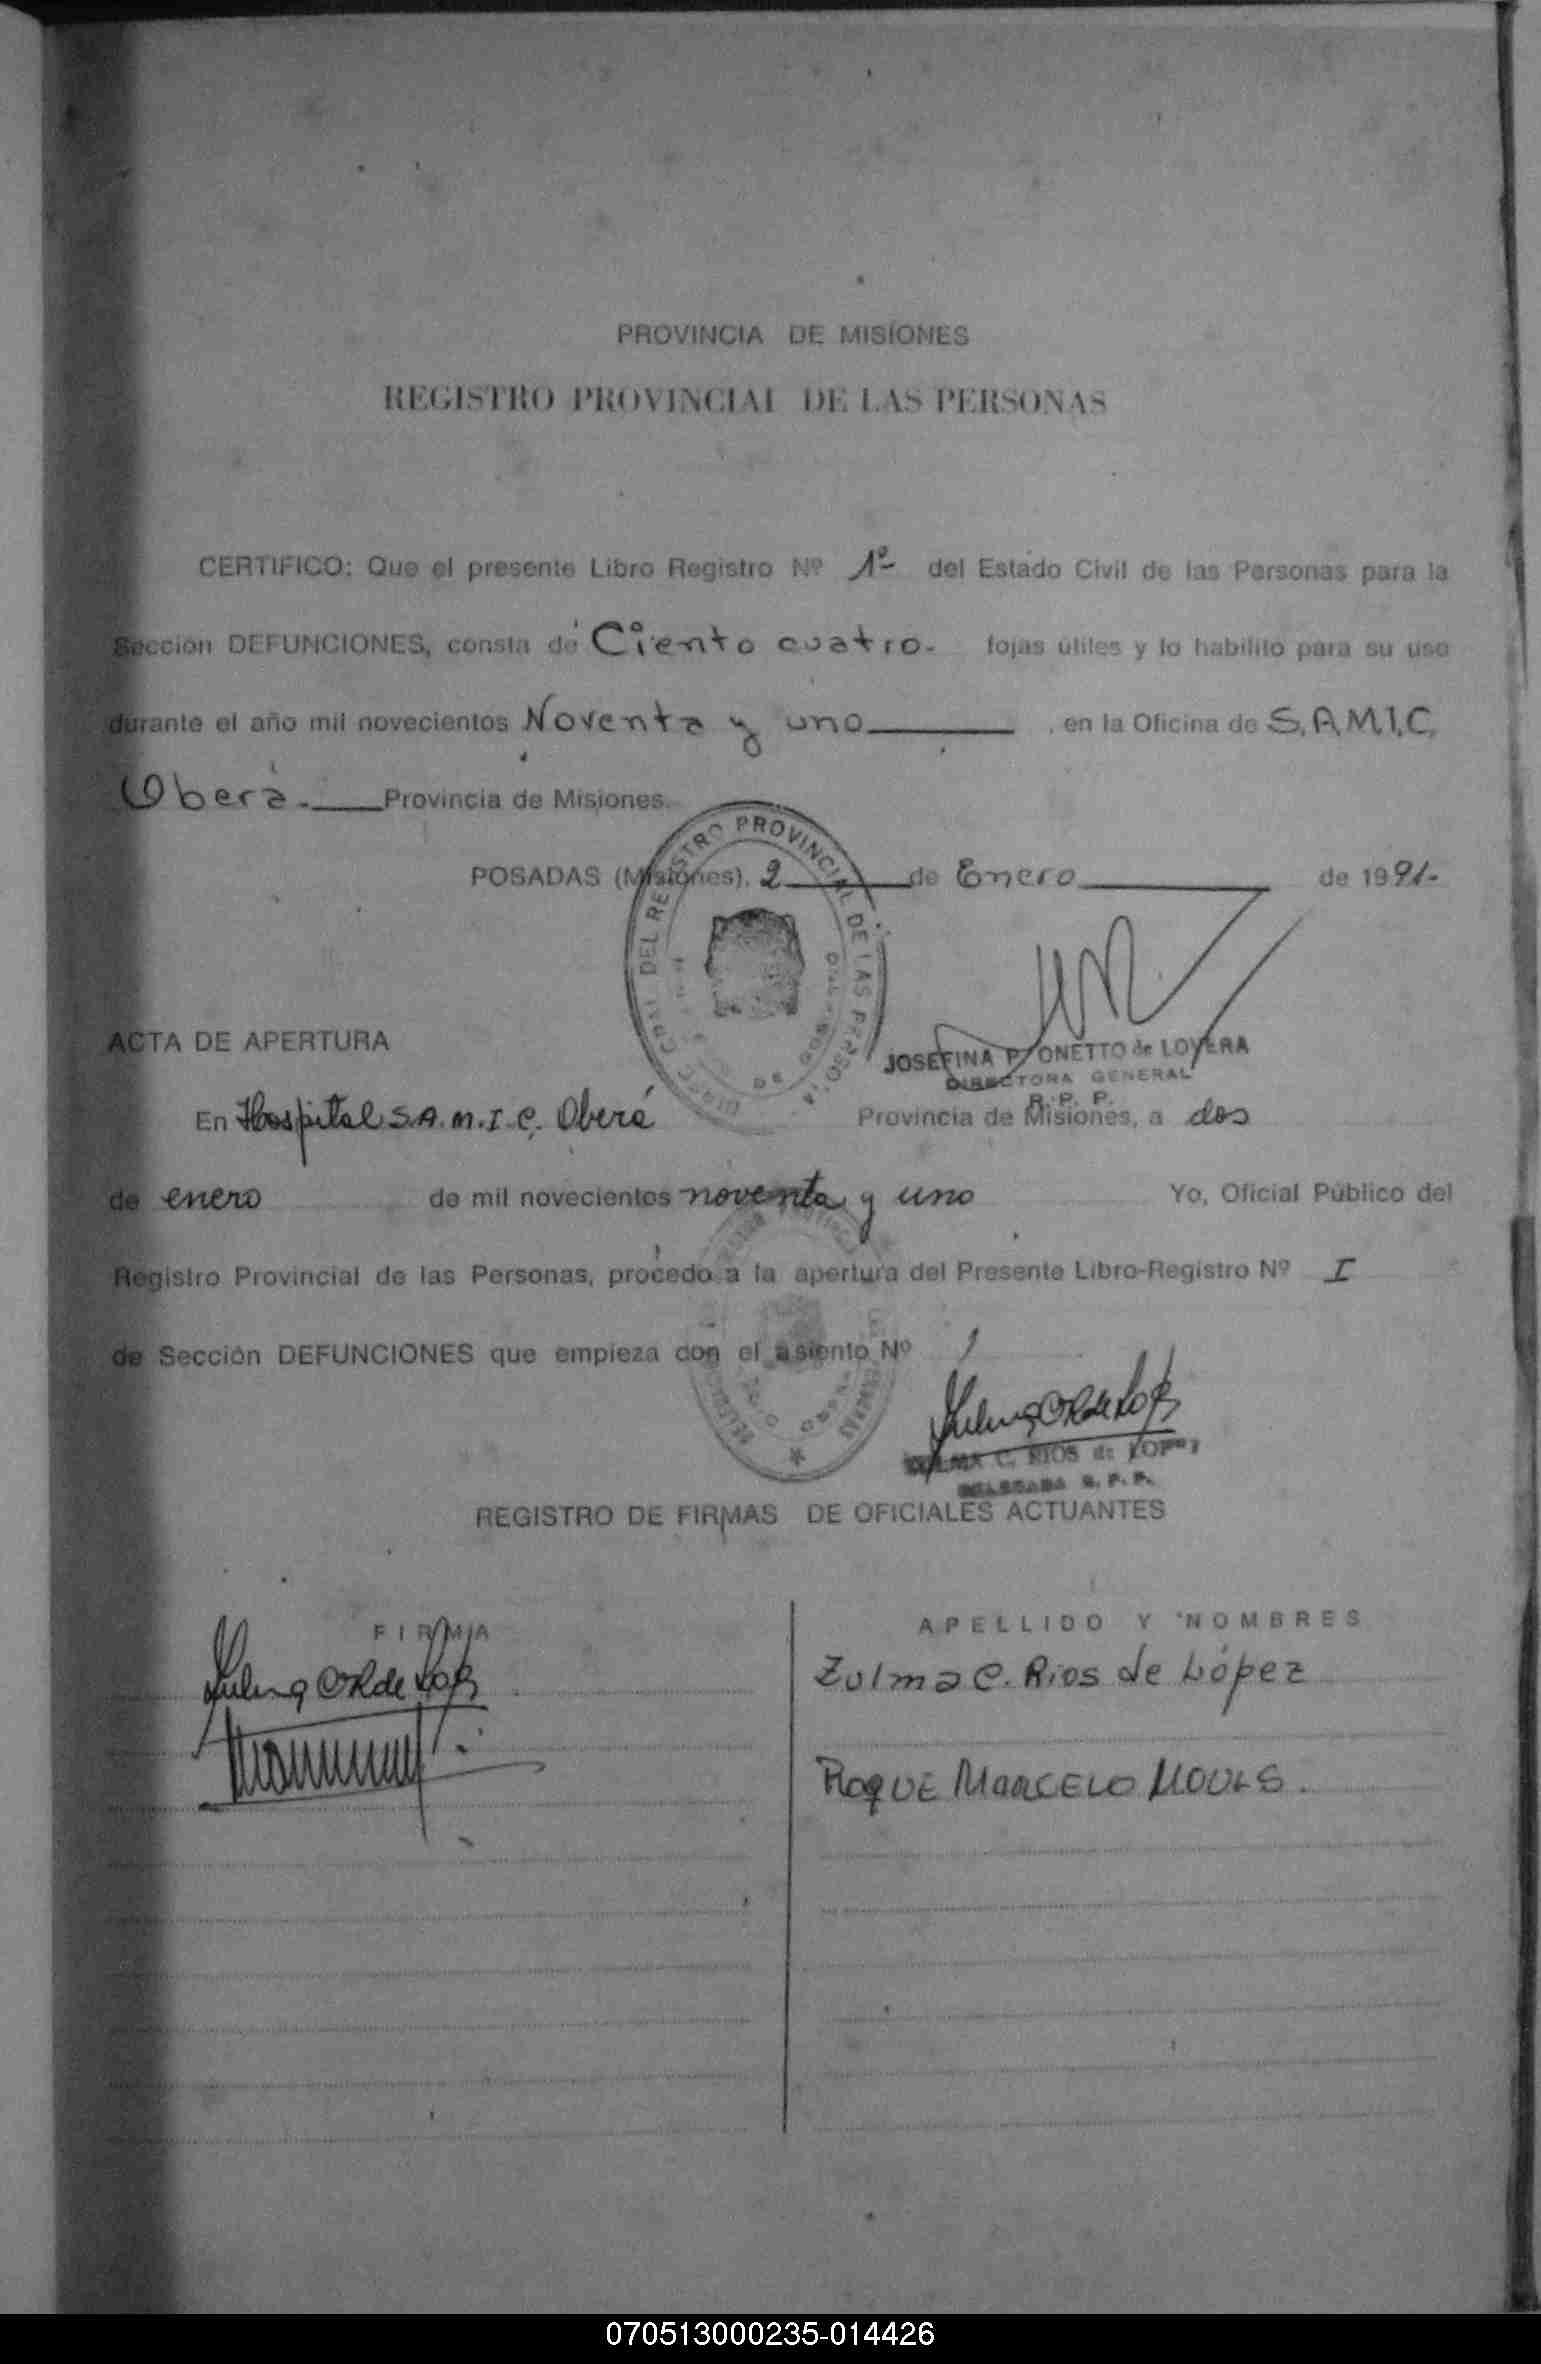 PROVINCIA DE MISIONES
REGISTRO PROVINCIAL DE LAS PERSONAS
CERTIFICO: Que el presente Libro Registro Nº 1º- del Estado Civil de las Personas para la
Sección DEFUNCIONES, consta de Ciento cuatro.- fojas útiles y lo habilito para su uso
durante el año mil novecientos Noventa y uno , en la Oficina de S.A.M.I.C.
Oberá.- Provincia de Misiones.
POSADAS (Misiones), 2 de Enero de 1991.-
DEL REGISTRO PROVINCIAL DE LAS
JOSEFINA P. ONETTO de LOVERA
DIRECTORA GENERAL
R. P. P.
ACTA DE APERTURA
En Hospital S.A.M.I.C. Oberá Provincia de Misiones, a dos
de enero de mil novecientos noventa y uno Yo, Oficial Público del
Registro Provincial de las Personas, procedo a la apertura del Presente Libro-Registro Nº I
de Sección DEFUNCIONES que empieza con el asiento Nº 1
ZULMA C. RIOS de LOPEZ
DELEGADA R. P. P.
REGISTRO DE FIRMAS DE OFICIALES ACTUANTES
FIRMA APELLIDO Y NOMBRES
Zulma C. Rios de López
ROQUE MARCELO
070513000235-014426